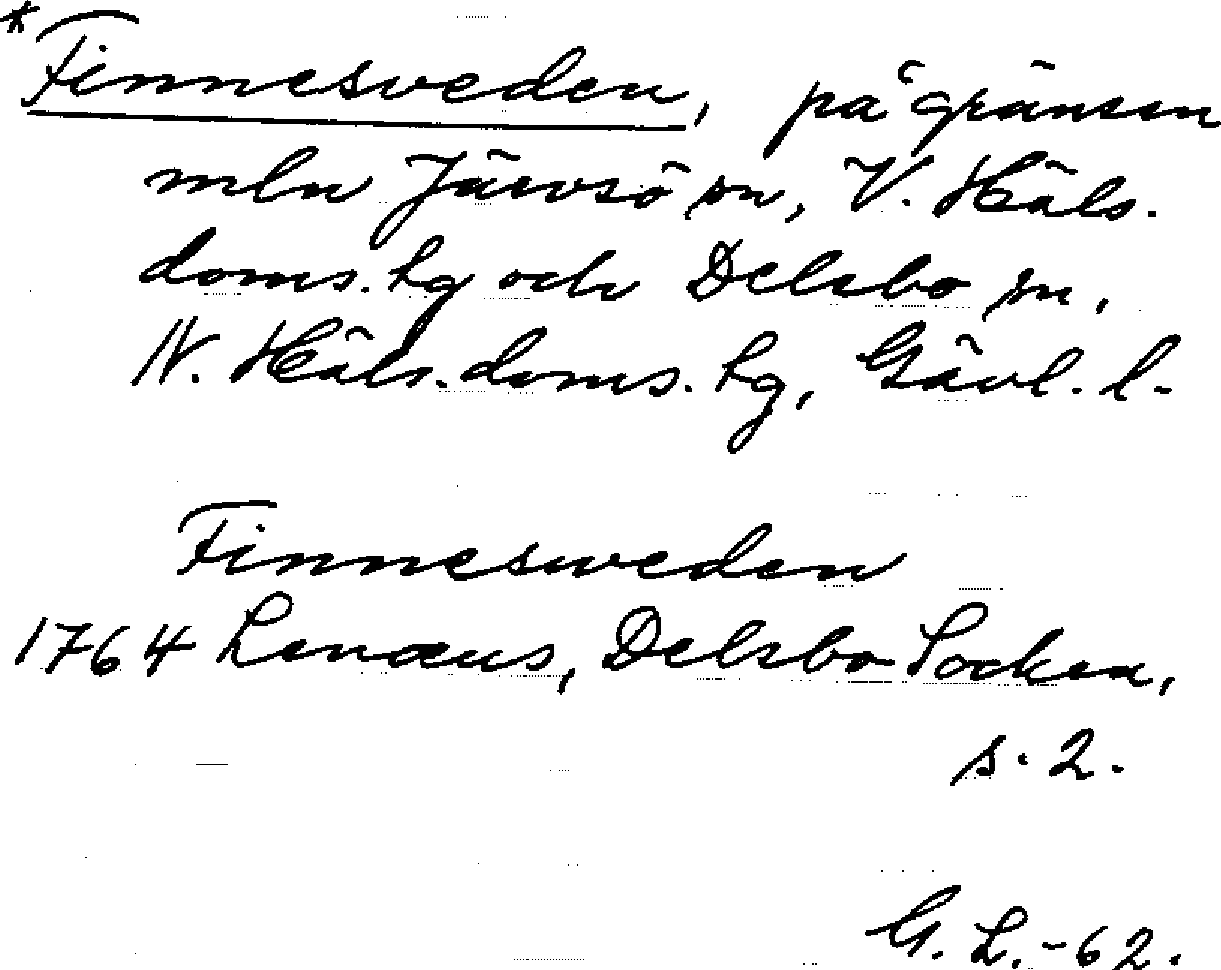 *Finnesveden, på gränsen
mln Järvsö sn, V. Häls.
doms. hg och Delsbo sn,
N. Häls. doms. hg, Gävl. l.
Finnesveden
1764 Lenæus, Delsbo Socken,
s. 2.
G. L. -62.